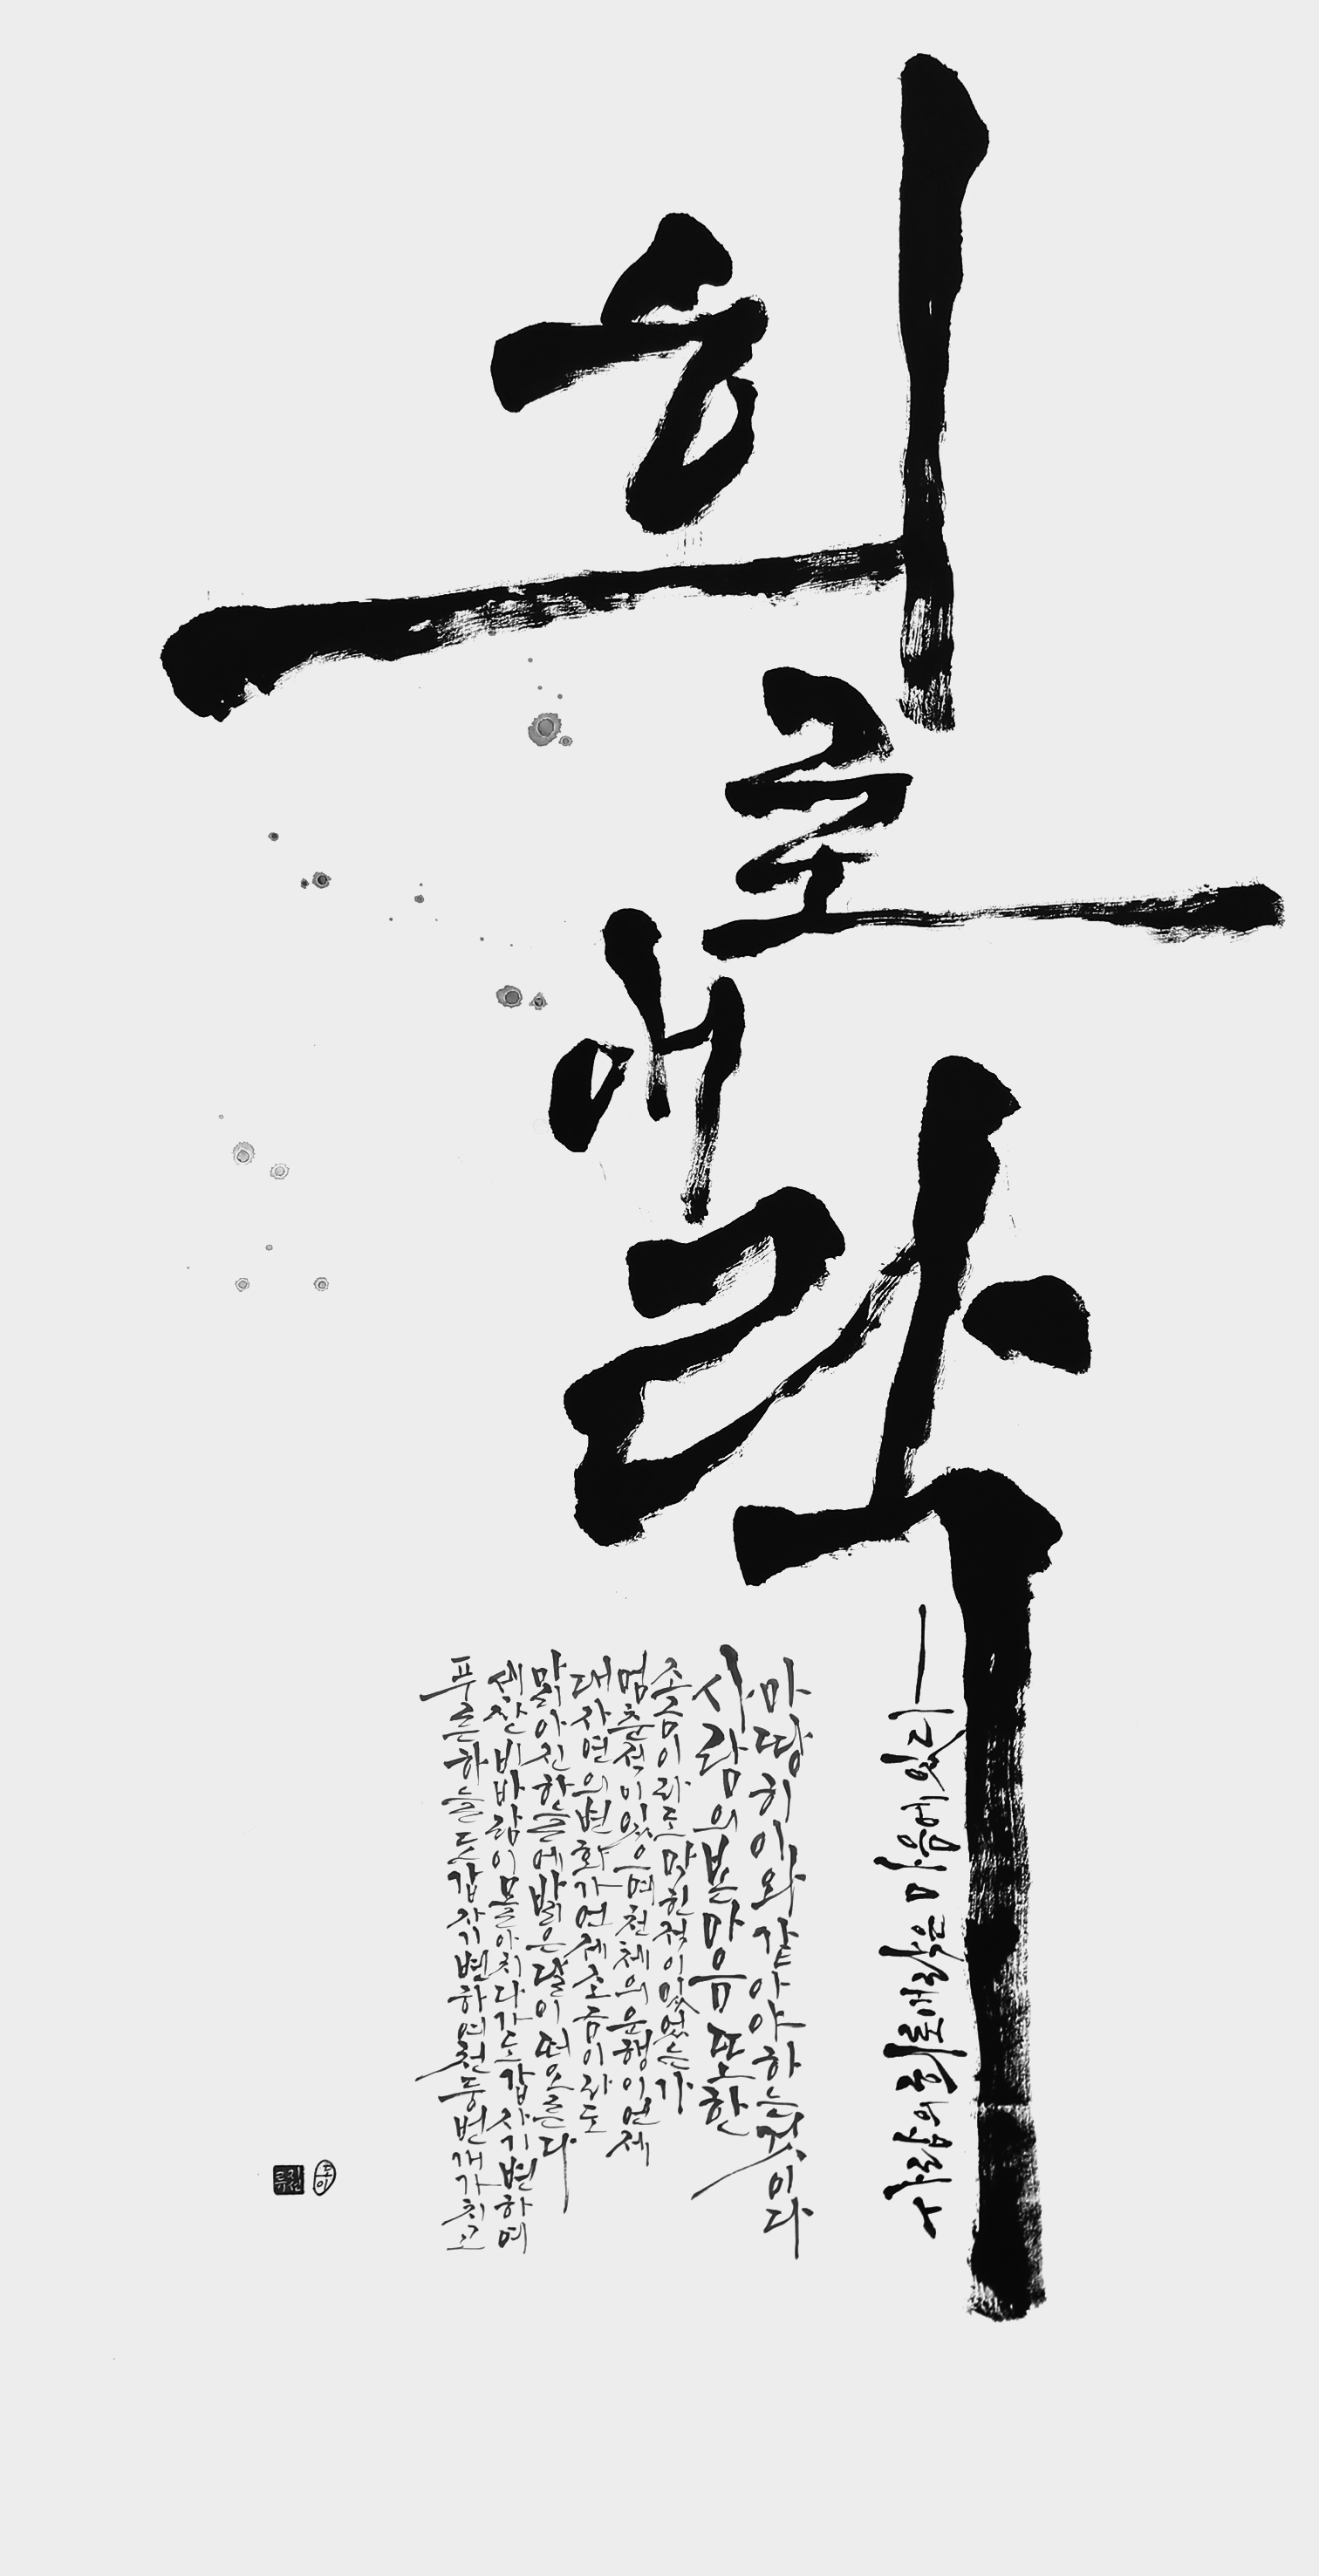 희로애락
사람의 희로애락은 마음에 있다
푸른 하늘도 갑자기 변하여 천둥번개가 치고
세찬 비바람이 몰아치다가도 갑자기 변하며
맑아진 하늘에 밝은 달이 떠오른다
대자연의 변화가 언제 조금이라도
멈춘적이 있으며 천체의 운행이 언제
조금이라도 막힌적이 있었는가
사람의 본마음 또한
마땅히 이와 같아야 하는것이다